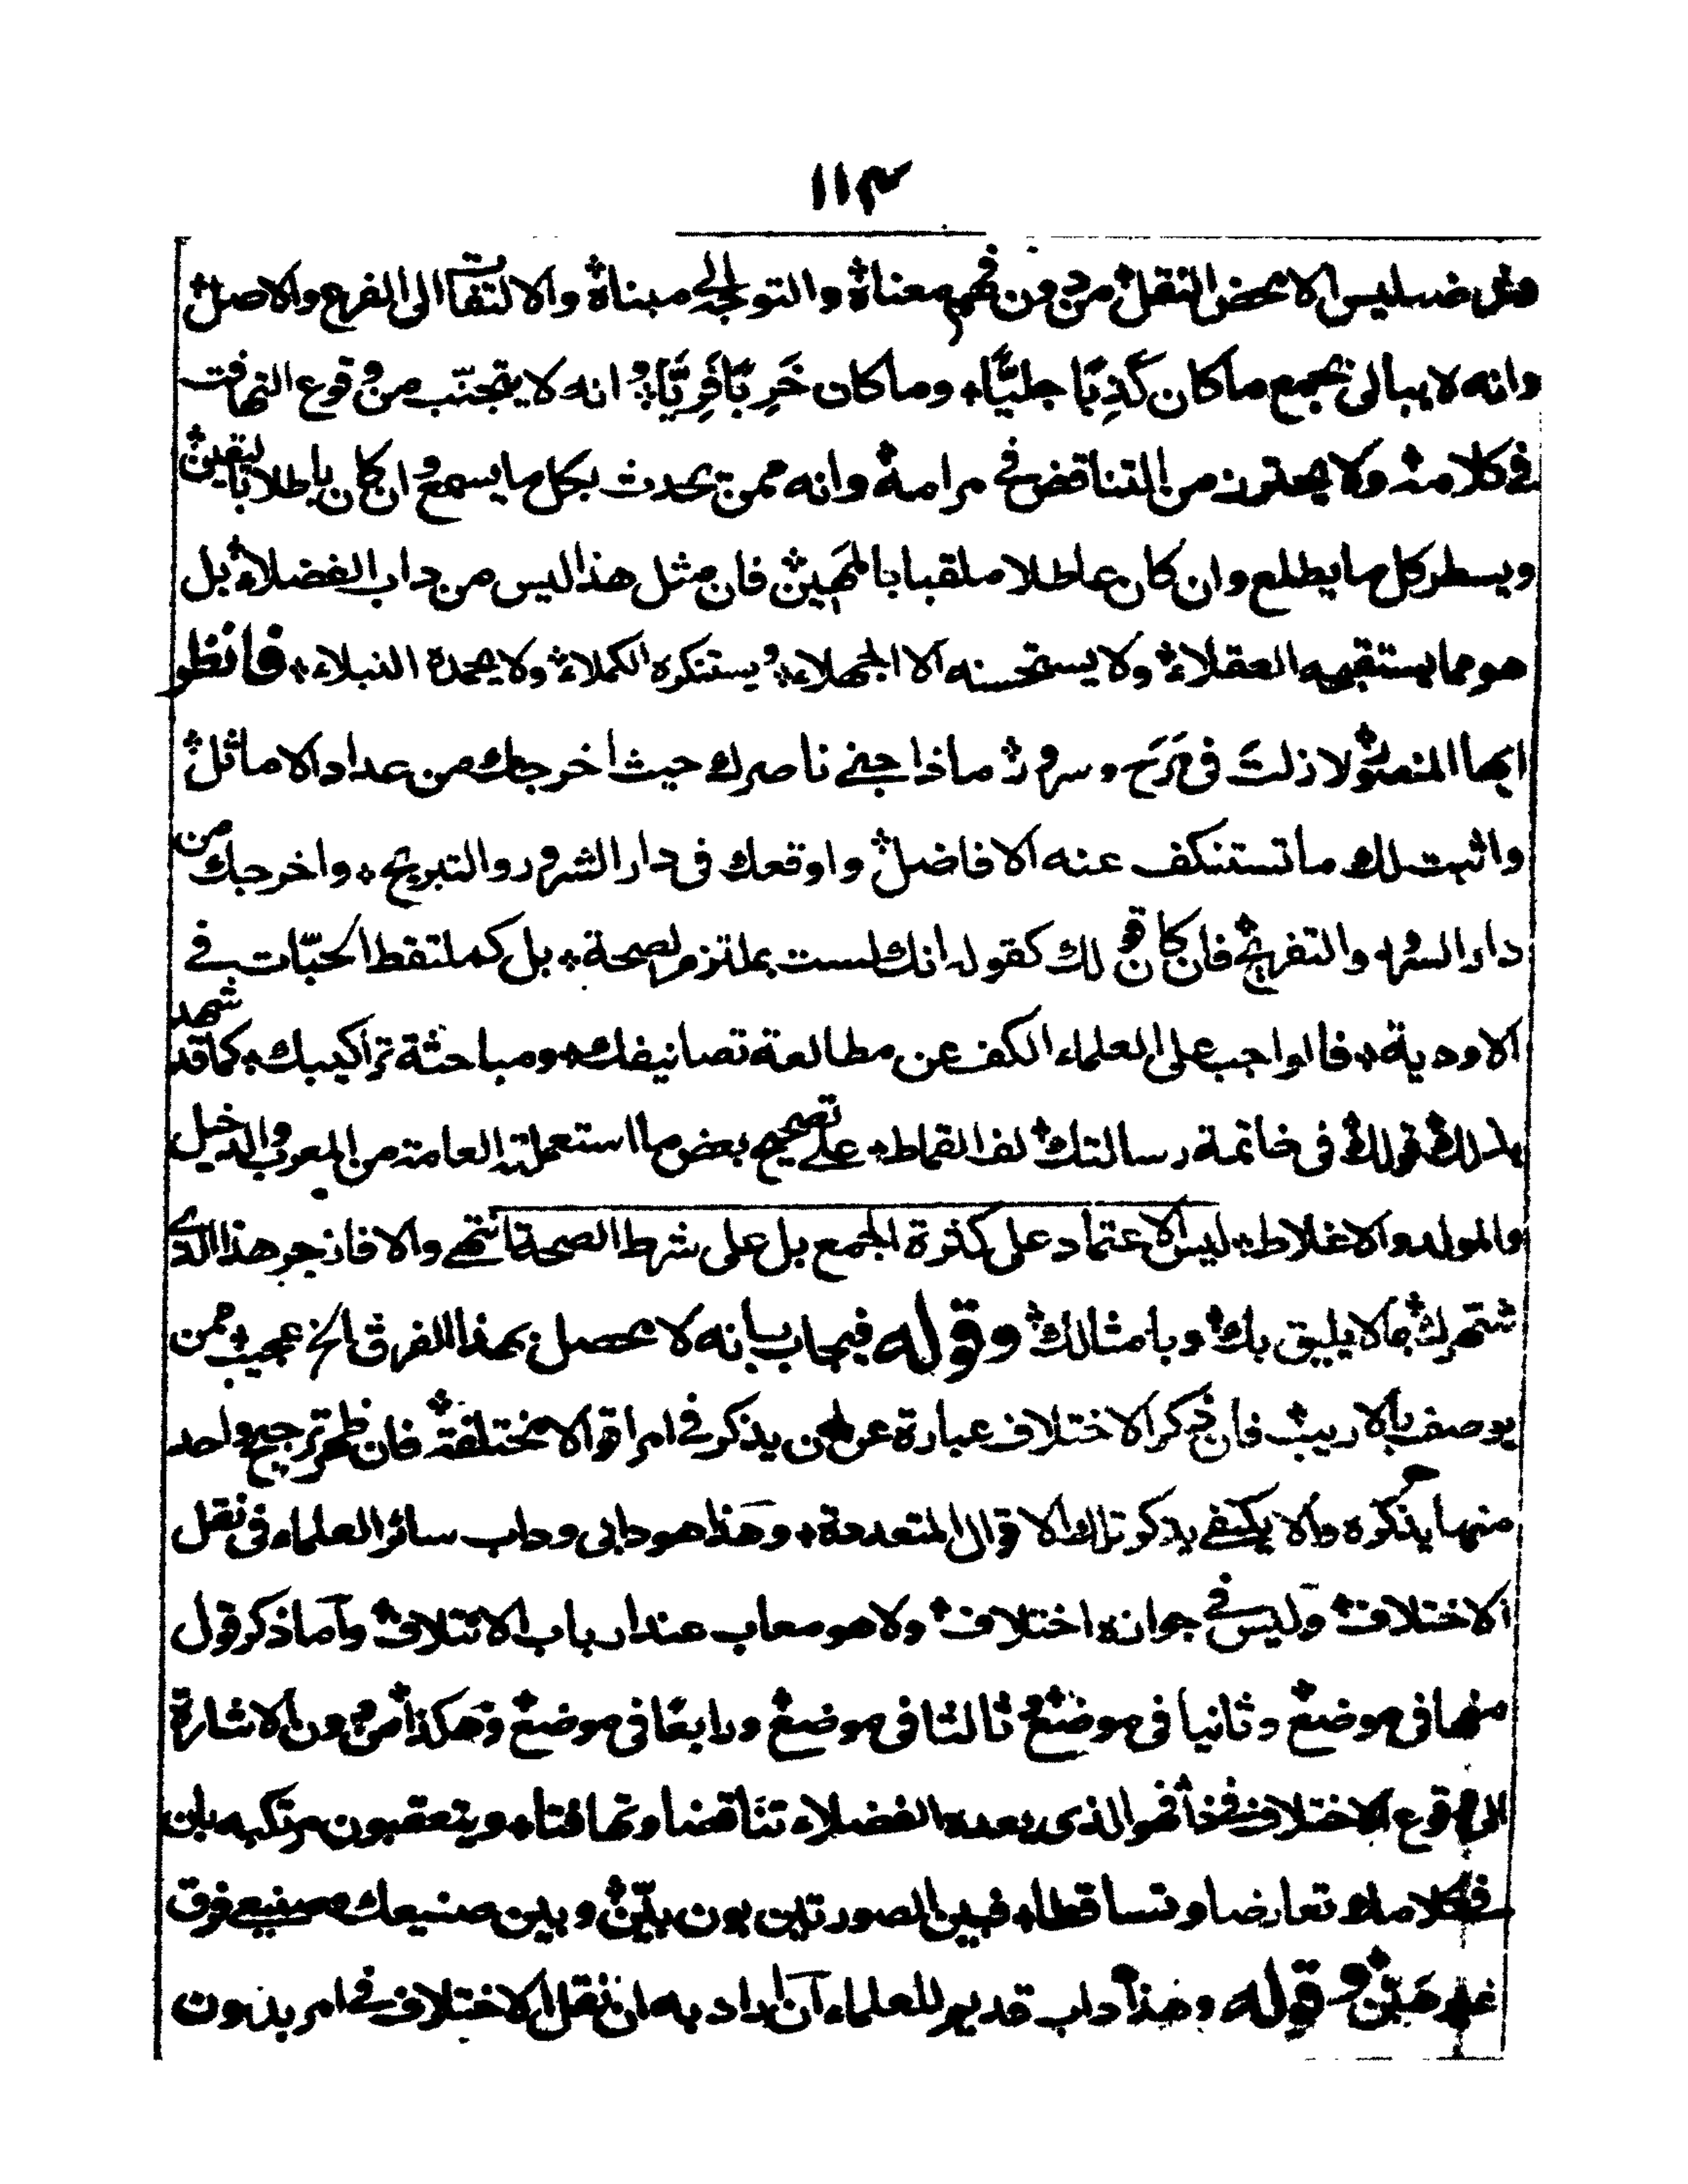 ۱۱۴
وغرضه ليس الا محض النقل من دون فهم معناه والتوجه الى مبناه والالتفات الى الفرع والاصل
وانه لا يبالى بجمع ما كان كَذِبًا جليًّا وما كان خَرِبًا فَرِيًّا وانه لا يتجنّب من وقوع التهافت
فى كلامه ولا يحترز من التناقض فى مرامه وانه ممن يحدث بكل ما يسمع وان كان باطلا باليقين
ويسطر كل ما يطلع وان كان عاطلا ملقبا بالمَهين فان مثل هذا ليس من داب الفضلاء بل
هو مما يستقبحه العقلاء ولا يستحسنه الا الجهلاء ويستنكره الكملاء ولا يحمده النبلاء فانظر
ايها المنصور لا زلتَ فى مَرَح وسرور ماذا جنى ناصرك حيث اخرجك من عداد الاماثل
واثبت لك ما تستنكف عنه الافاضل واوقعك فى دار الشرور والتبريح واخرجك من
دار السرور والتفريح فان كان قوله لك كقوله انك لست بملتزم لصحة بل كملتقط الحبّات فى
الاودية فالواجب على العلماء الكف عن مطالعة تصانيفك ومباحثة تراكيبك كما قد شهد
بذلك قولك فى خاتمة رسالتك لف القماط على تصحيح بعض ما استعملته العامة من المعرب والدخيل
والمولد والاغلاط ليس الاعتماد على كثرة الجمع بل على شرط الصحة انتهى والا فازجر هذا الذى
شتهرك بما لا يليق بك وبامثالك وقوله فيجاب بانه لا يحصل بهذا الفرق الخ عجيب ممن
يوصف بالاريب فان ذكر الاختلاف عبارة عن ان يذكر فى امر اقوالا مختلفة فان ظهر ترجيح واحد
منها يذكره والا يكتفى بذكر تلك الاقوال المتعددة وهذا هو دابى وداب سائر العلماء فى نقل
الاختلاف وليس فى جوازه اختلاف ولا هو معاب عند ارباب الائتلاف وأما ذكر قول
منها فى موضع وثانيا فى موضع وثالثا فى موضع ورابعًا فى موضع وهكذا من دون الاشارة
الى وقوع الاختلاف فهو الذى يعده الفضلاء تناقضا وتهافتا ويتعقبون مرتكبه بان
فى كلامك تعارضا وتساقطا فبين الصورتين بون بيّن وبين صنيعك وصنيعى فرق
غير هَيّن وقوله وهذا داب قديم للعلماء آن اراد به ان نقل الاختلاف فى امر بدون